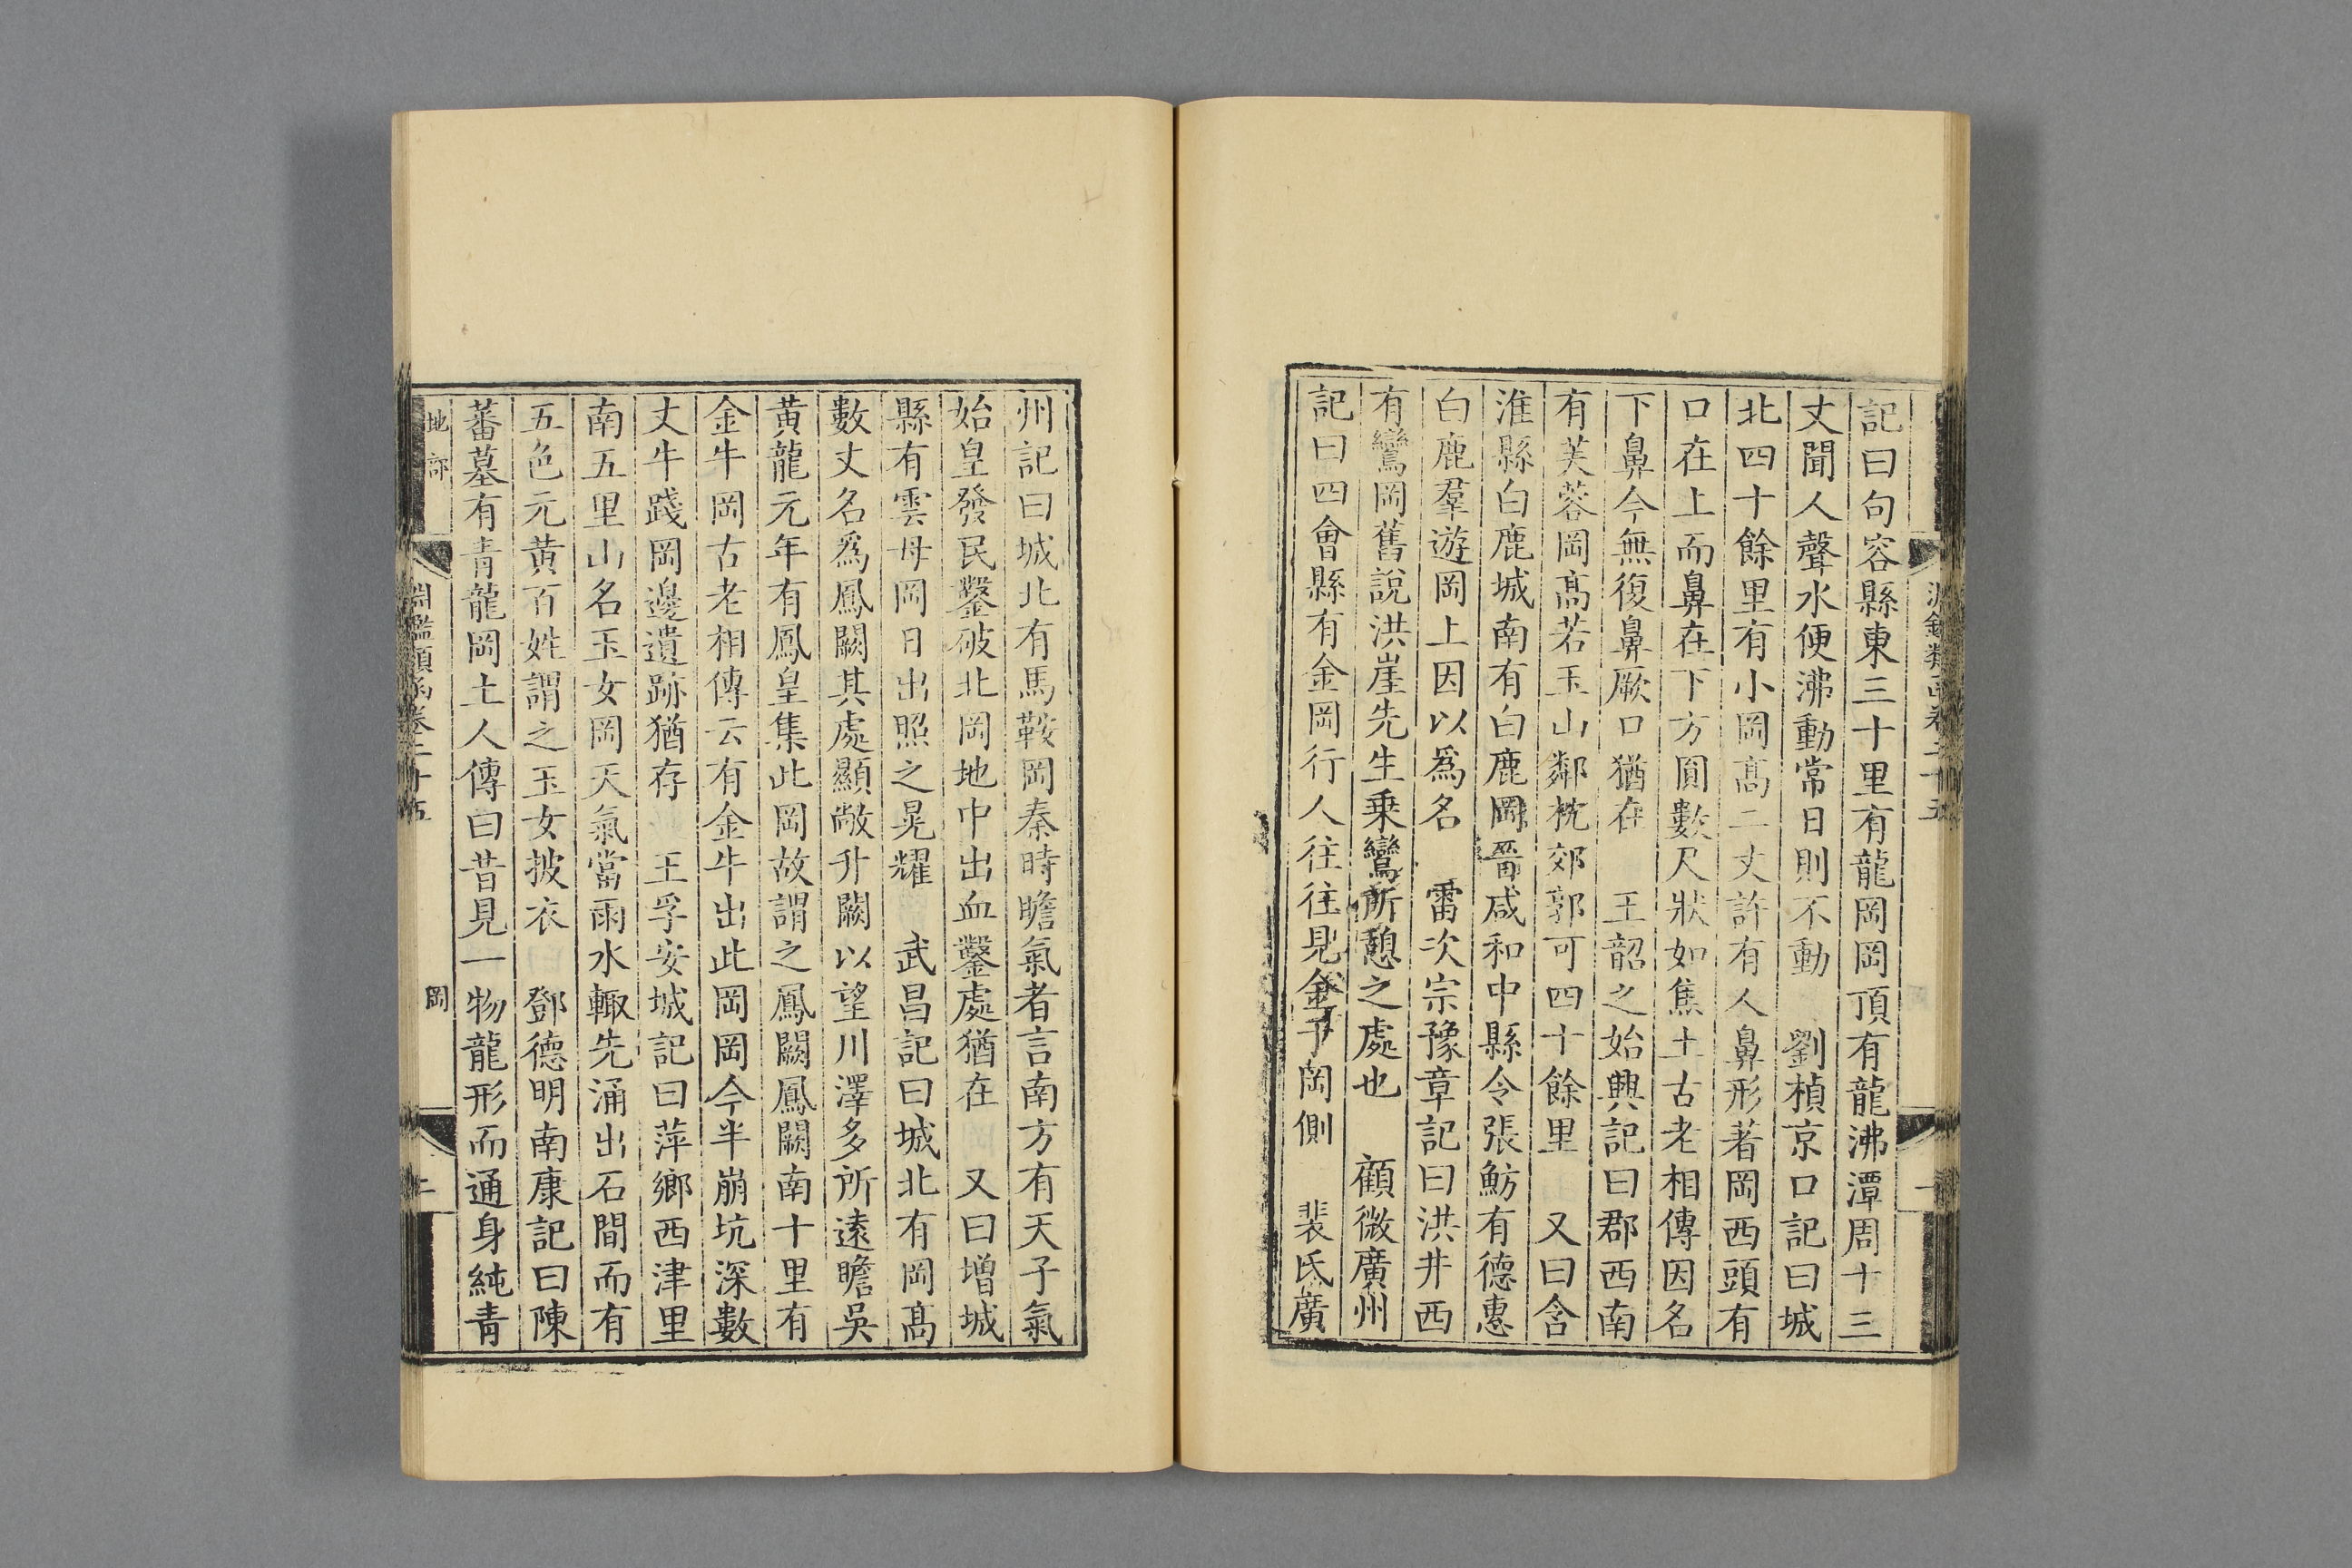 記曰句容縣東三十里有龍岡岡頂有龍沸潭周十三
丈聞人聲水便沸動常日則不動　劉楨京口記曰城
北四十餘里有小岡髙二丈許有人鼻形著岡西頭有
口在上而鼻在下方圓數尺狀如焦土古老相傳因名
下鼻今無復鼻厥口猶在　王韶之始興記曰郡西南
有芙蓉岡髙若玉山鄰枕郊郭可四十餘里　又曰含
淮縣白鹿城南有白鹿岡晉咸和中縣令張魴有德惠
白鹿羣遊岡上因以爲名　雷次宗豫章記曰洪井西
有鸞岡舊說洪崖先生乗鸞所憩之處也　顧微廣州
記曰四會縣有金岡行人往往見金于岡側　裴氏廣
州記曰城北有馬鞍岡秦時瞻氣者言南方有天子氣
始皇發民鑿破北岡地中出血鑿處猶在　又曰增城
縣有雲母岡日出照之晃耀　武昌記曰城北有岡髙
數丈名爲鳳闕其處顯敞升闕以望川澤多所遠瞻吳
黄龍元年有鳳皇集此岡故謂之鳳闕鳳闕南十里有
金牛岡古老相傳云有金牛出此岡岡今半崩坑深數
丈牛踐岡邊遺跡猶存　王孚安城記曰萍鄉西津里
南五里山名玉女岡天氣當雨水輙先涌出石間而有
五色元黄百姓謂之玉女披衣　鄧德明南康記曰陳
蕃墓有青龍岡土人傳曰昔見一物龍形而通身純青
地部　淵鑑類函卷二十五　岡　二